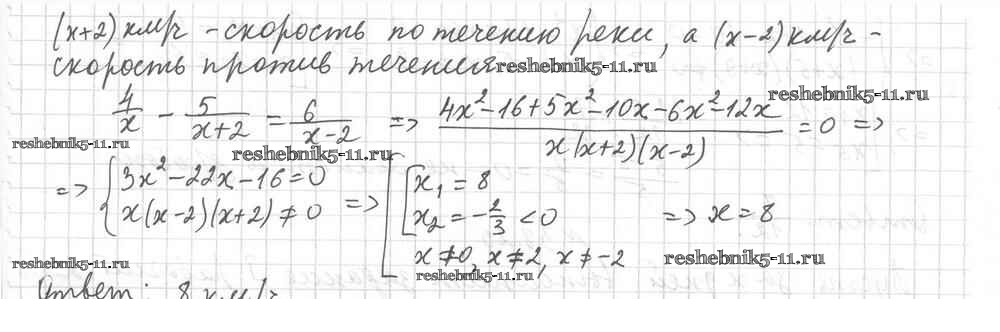 (x+2) км/ч - скорость по течению реки, а (x-2) км/ч -
скорость против течения reshebnik5-11.ru
4/x - 5/(x+2) = 6/(x-2) => (4x²-16+5x²-10x-6x²-12x)/(x(x+2)(x-2)) = 0 =>
reshebnik5-11.ru
reshebnik5-11.ru
reshebnik5-11.ru
=> { 3x²-22x-16=0
x(x-2)(x+2) ≠ 0 => [ [ x₁ = 8
x₂ = -2/3 < 0 => x = 8
x ≠ 0, x ≠ 2, x ≠ -2
reshebnik5-11.ru
reshebnik5-11.ru
reshebnik5-11.ru
Ответ: 8 км/ч